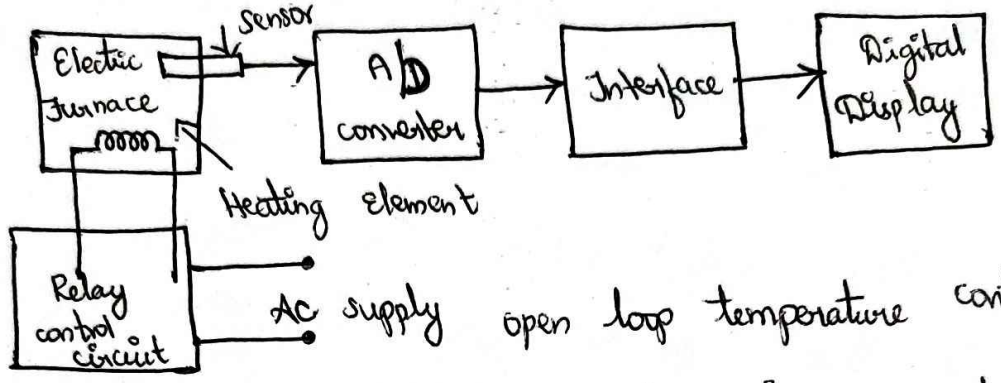 Sensor
Electric
Furnace
A/D
converter
Interface
Digital
Display
Heating Element
Relay
control
circuit
AC supply
open loop temperature con